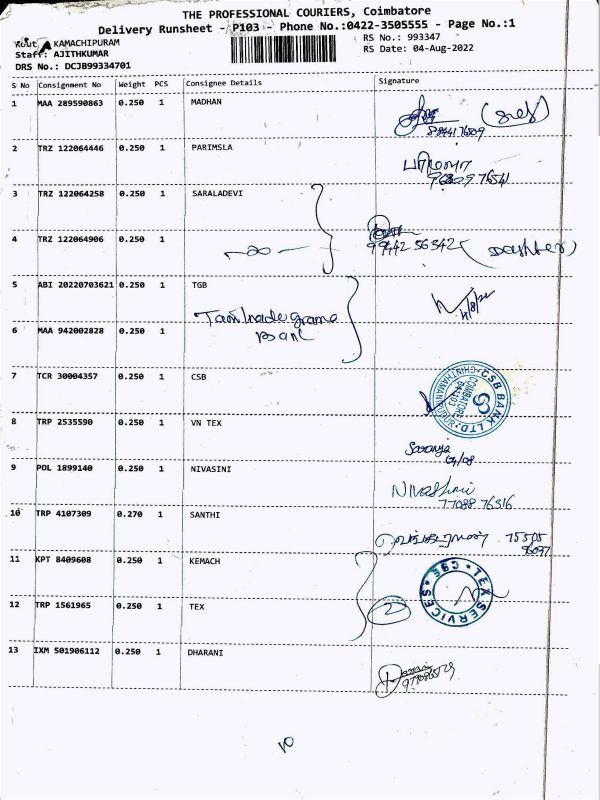 THE PROFESSIONAL COURIERS, Coimbatore
Delivery Runsheet - P103 - Phone No.:0422-3505555 - Page No.:1
KAMACHIPURAM
RS No.: 993347
Staff: AJITHKUMAR
RS Date: 04-Aug-2022
DRS No.: DCJB99334701
S No Consignment No Weight PCS Consignee Details Signature
1 MAA 289590863 0.250 1 MADHAN
2 TRZ 122064446 0.250 1 PARIMSLA
பரிமளா
3 TRZ 122064258 0.250 1 SARALADEVI
4 TRZ 122064906 0.250 1
99442 56342 (Daughter)
5 ABI 20220703621 0.250 1 TGB
Tamilnadu grama
Bank
4/8/22
6 MAA 942002828 0.250 1
7 TCR 30004357 0.250 1 CSB
CSB BANK LTD
CHINTHAMANIPUDUR
COIMBATORE
641103
8 TRP 2535590 0.250 1 VN TEX
Saranya
04/08
9 POL 1899140 0.250 1 NIVASINI
Nivashini
77088 76316
10 TRP 4107309 0.270 1 SANTHI
75505
11 KPT 8409608 0.250 1 KEMACH
TEX SERVICES
CBE
12 TRP 1561965 0.250 1 TEX
2
13 IXM 501906112 0.250 1 DHARANI